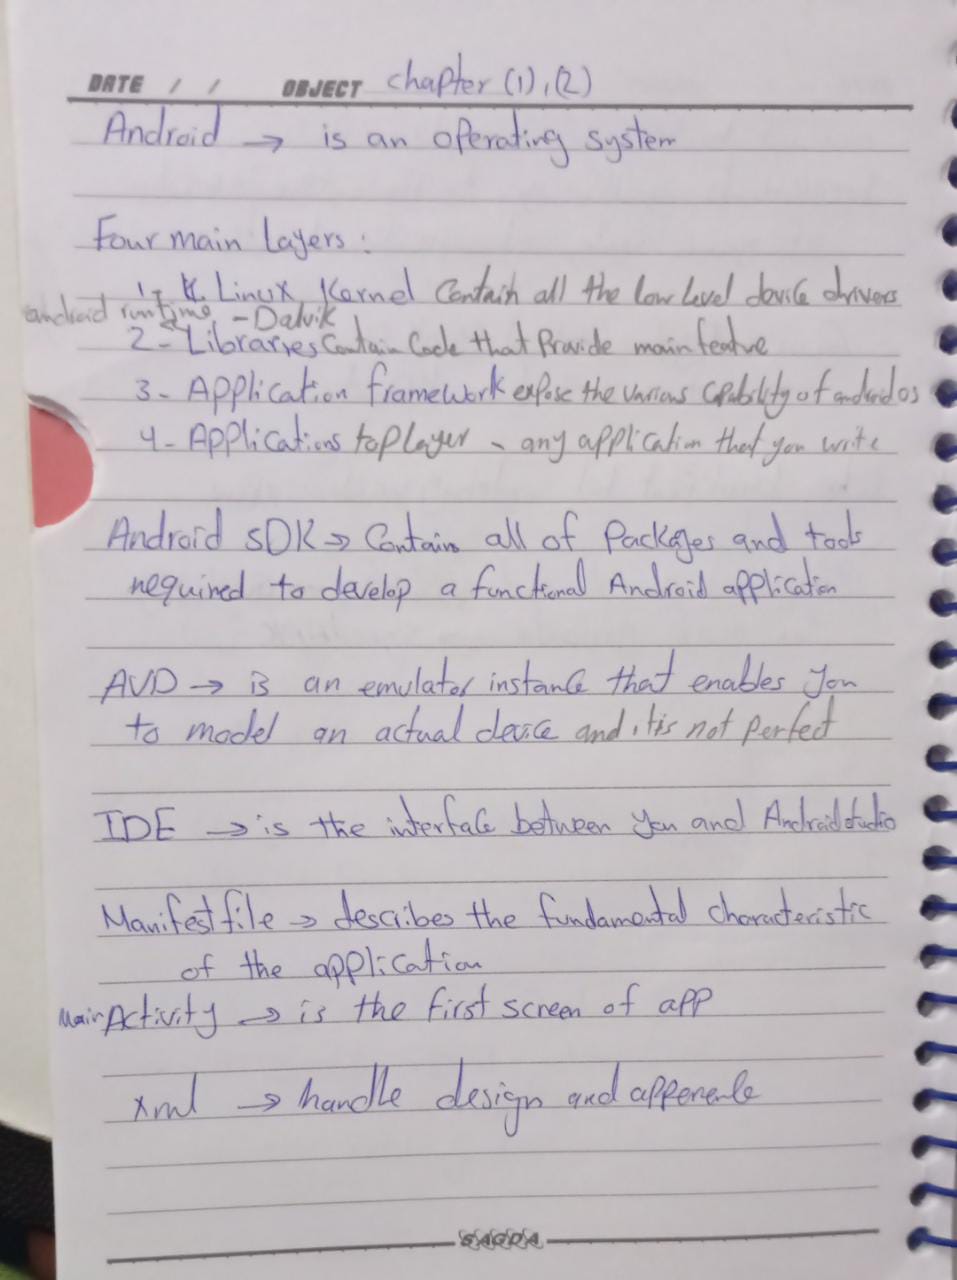 DATE / / OBJECT chapter (1),(2)
Android → is an operating system
Four main Layers:
1- Linux Kernel Contain all the low level device drivers
android runtime - Dalvik
2- Libraries Contain Code that Provide main featue
3- Application framework expose the various capability of android os
4- Applications top layer - any application that you write
Android SDK → Contain all of Packages and tools
required to develop a functional Android application
AVD → is an emulator instance that enables you
to model an actual device and it is not perfect
IDE → is the interface between you and Android studio
Manifest file → describes the fundamental characteristic
of the application
Main Activity → is the first screen of app
xml → handle design and